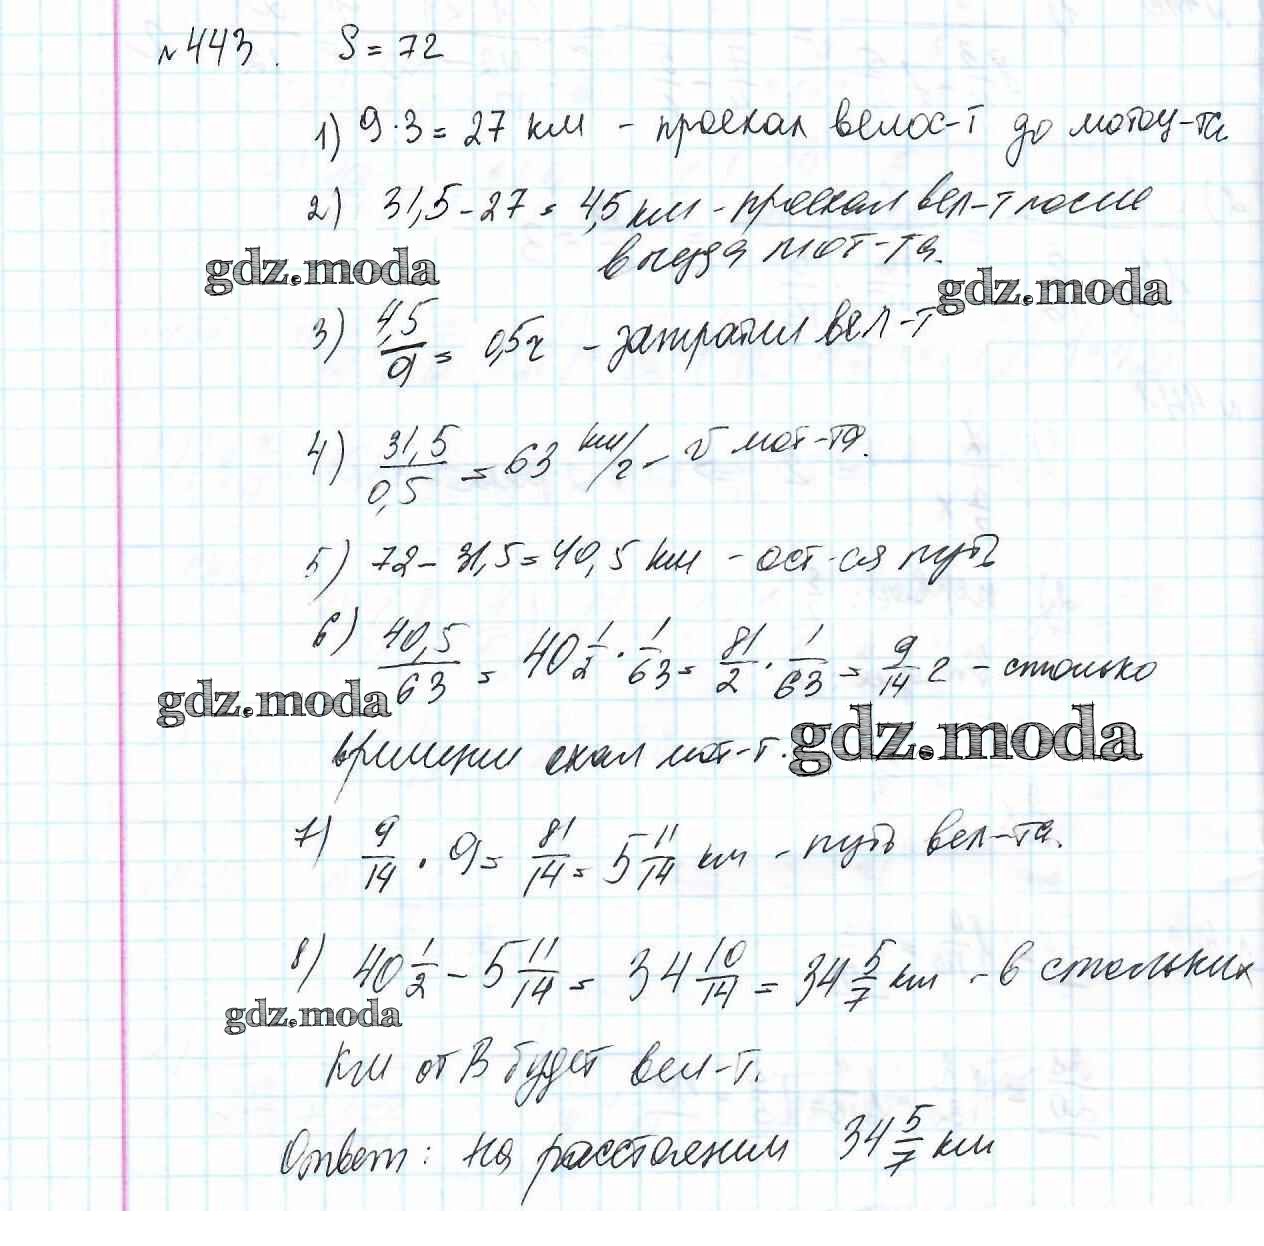 №443. S = 72
1) 9 · 3 = 27 км - проехал велос-т до мотоц-та.
2) 31,5 - 27 = 4,5 км - проехал вел-т после
выезда мот-та.
gdz.moda
gdz.moda
3) 4,5/9 = 0,5 ч - затратил вел-т
4) 31,5/0,5 = 63 км/ч - v мот-та.
5) 72 - 31,5 = 40,5 км - ост-ся путь
6) 40,5/63 = 40 1/2 · 1/63 = 81/2 · 1/63 = 9/14 ч - столько
gdz.moda
времени ехал мот-т.
gdz.moda
7) 9/14 · 9 = 81/14 = 5 11/14 км - путь вел-та.
8) 40 1/2 - 5 11/14 = 34 10/14 = 34 5/7 км - в стольких
gdz.moda
км от В будет вел-т.
Ответ: на расстоянии 34 5/7 км